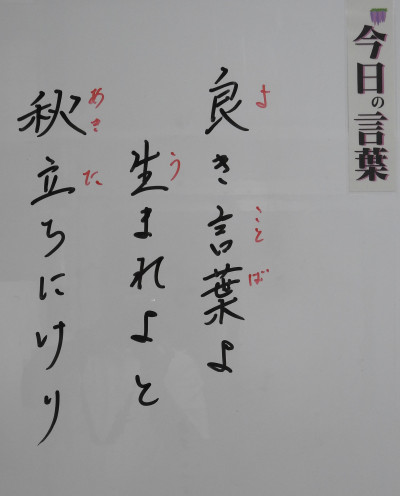 今日の言葉
良き言葉よ
よ
ことば
生まれよと
う
秋立ちにけり
あき
た